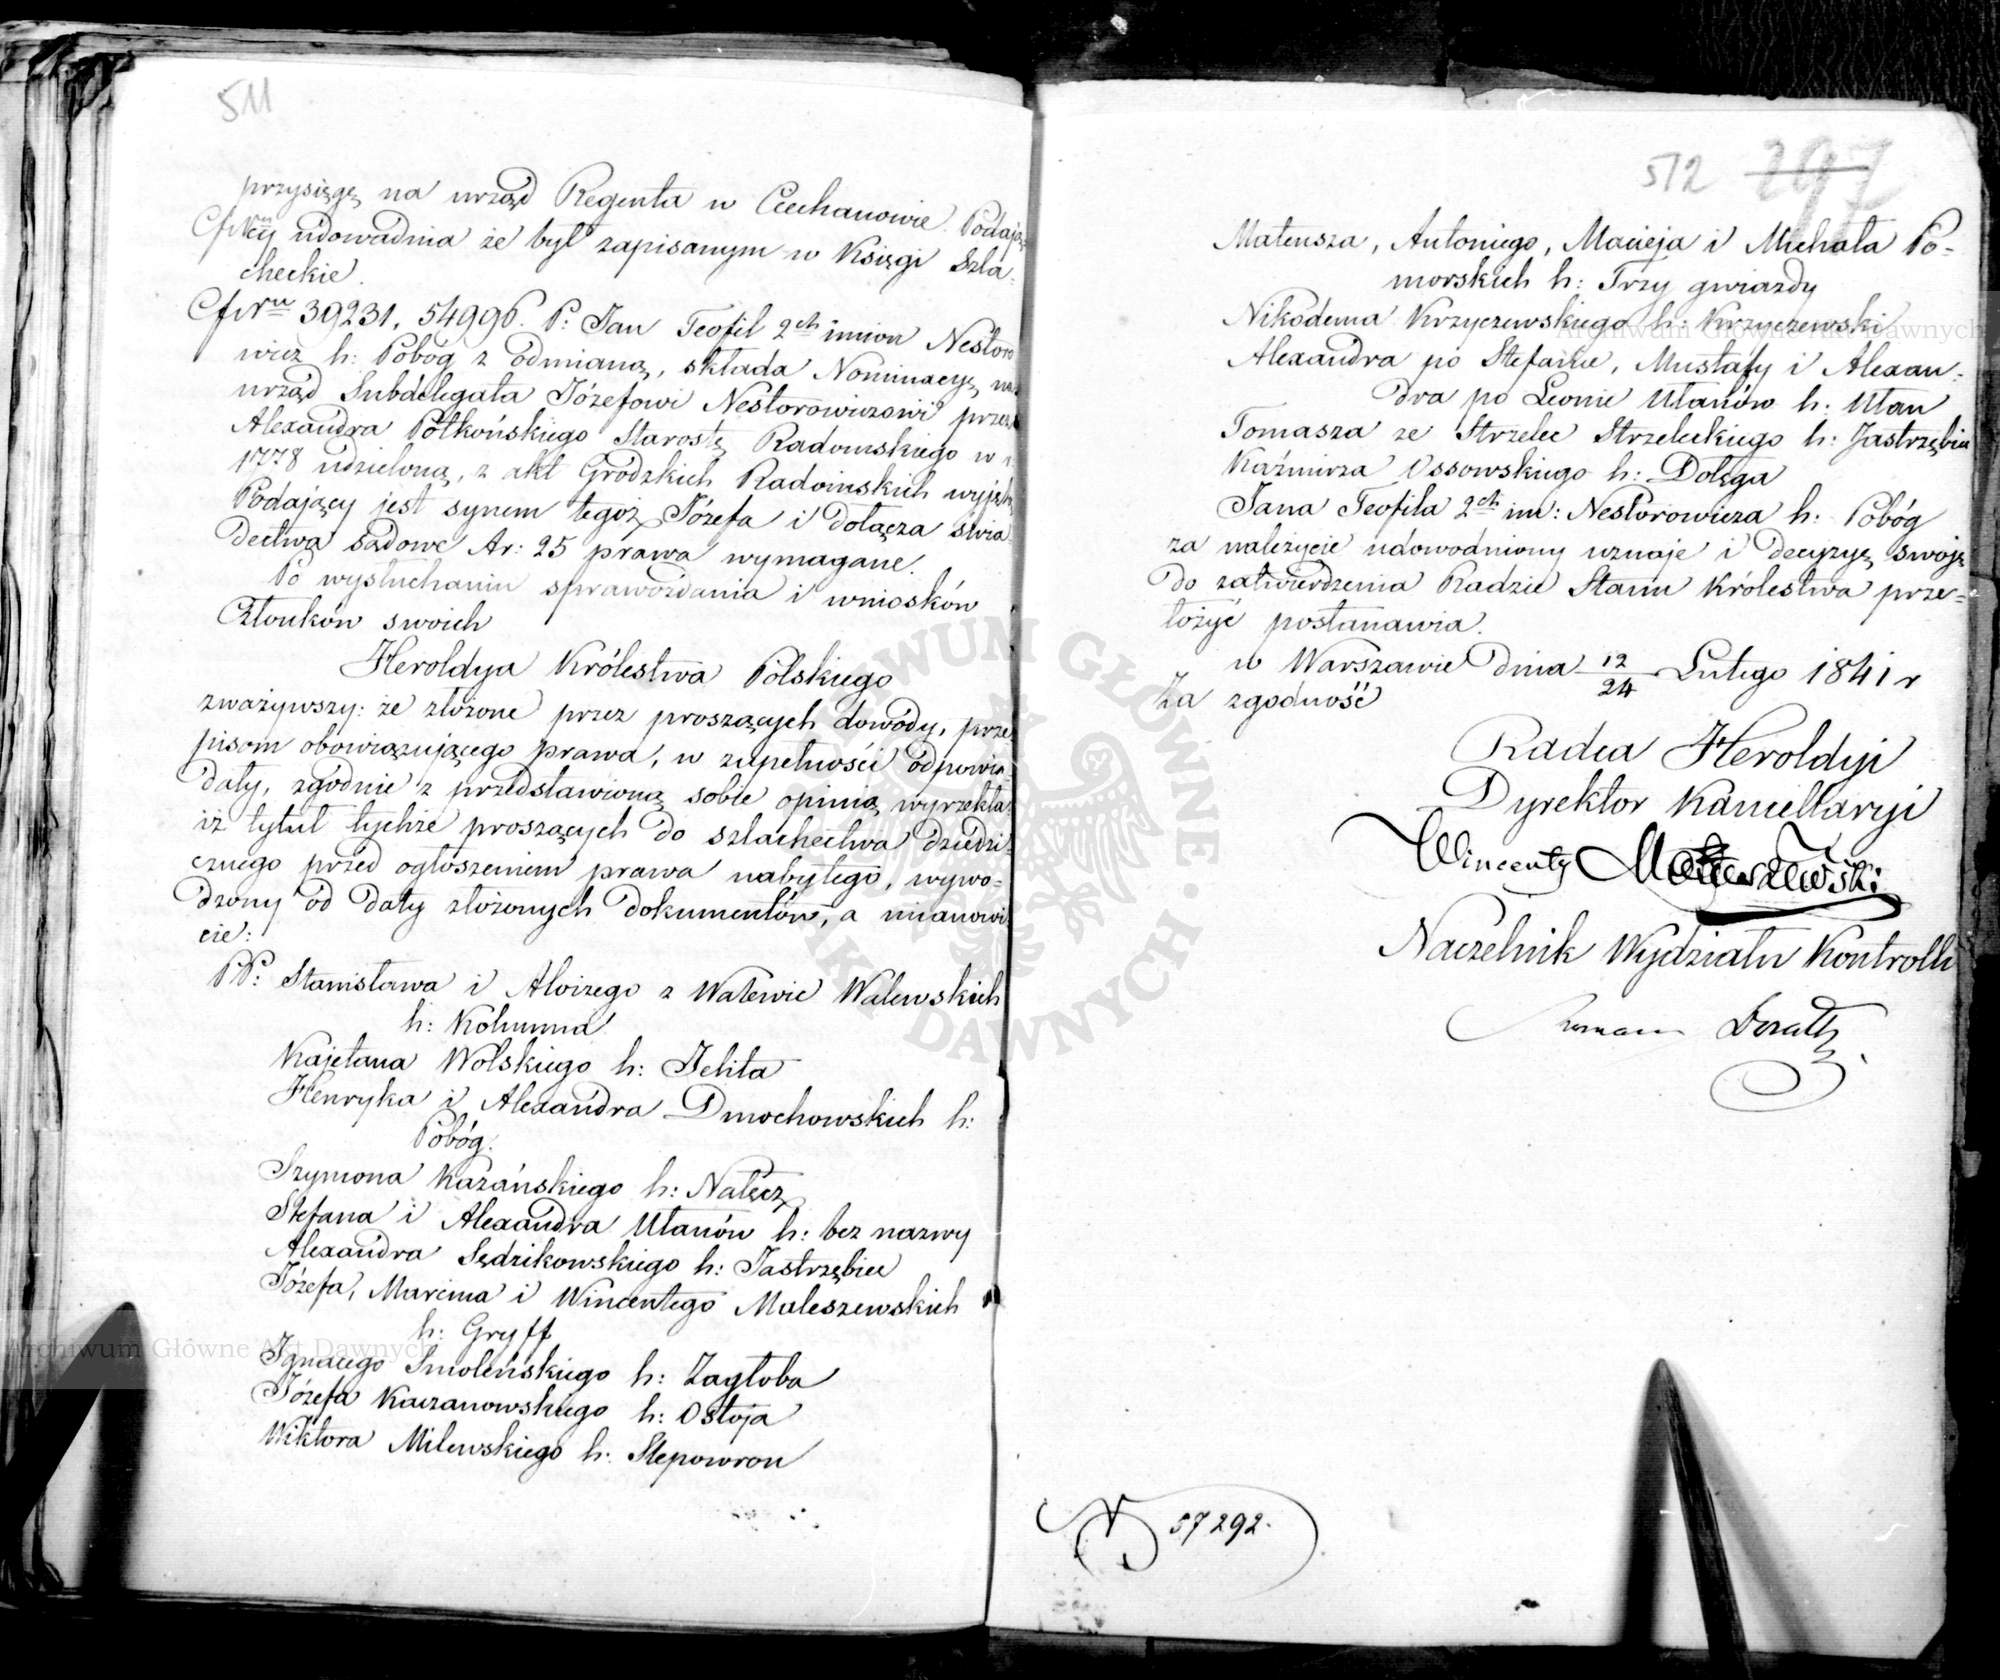 511
przysięgę na urząd Regenta w Ciechanowie. Podają-
cy udowadnia że był zapisanym w Księgi Szla-
checkie.
39231, 54996. P: Jan Teofil 2ch imion Nestoro
wicz h: Pobóg z odmianą, składa Nominacyę na
urząd Subdelegata Józefowi Nestorowiczowi przez
Alexandra Potkońskiego Starostę Radomskiego w r
1778 udzieloną, z akt Grodzkich Radomskich wyjętą
Podający jest synem tegoż Józefa i dołącza swia-
dectwa sądowe Ar: 25 prawa wymagane.
Po wysłuchaniu sprawozdania i wniosków
Członków swoich
Heroldya Królestwa Polskiego
zważywszy: że złożone przez proszących dowody, prze
pisom obowiązującego prawa, w zupełności odpowia-
dały, zgodnie z przedstawioną sobie opinią wyrzekła
iż tytuł tychże proszących do szlachectwa dziedzi-
cznego przed ogłoszeniem prawa nabytego, wywo-
dzony od daty złożonych dokumentów, a mianowi
cie:
PP: Stanisława i Aloizego z Walewic Walewskich
h: Kolumna
Kajetana Wolskiego h: Jelita
Henryka i Alexandra Dmochowskich h:
Pobóg.
Szymona Kazańskiego h: Nałęcz
Stefana i Alexandra Ułanów h: bez nazwy
Alexandra Sędzikowskiego h: Jastrzębiec
Józefa, Marcina i Wincentego Maleszewskich
h: Gryff
Ignacego Smoleńskiego h: Zagłoba
Józefa Kaczanowskiego h: Ostoja
Wiktora Milewskiego h: Slepowron
512 297
Mateusza, Antoniego, Macieja i Michała Po-
morskich h: Trzy gwiazdy
Nikodema Krzyczewskiego h: Krzyczewski
Alexandra po Stefanie, Mustafy i Alexan-
dra po Leonie Ułanów h: Ułan
Tomasza ze Strzelec Strzeleckiego h: Jastrzębiec
Kaźmirza Ossowskiego h: Dołęga
Jana Teofila 2ch im: Nestorowicza h: Pobóg
za należycie udowodniony uznaje i decyzyę swoję
do zatwierdzenia Radzie Stanu Królestwa prze-
łożyć postanawia.
w Warszawie dnia 12/24 Lutego 1841 r
Za zgodność
Radca Heroldyi
Dyrektor Kancellaryi
Wincenty
Naczelnik Wydziału Kontrolli
57292.
Archiwum Główne Akt Dawnych
Archiwum Główne Akt Dawnych
ARCHIWUM GŁÓWNE AKT DAWNYCH